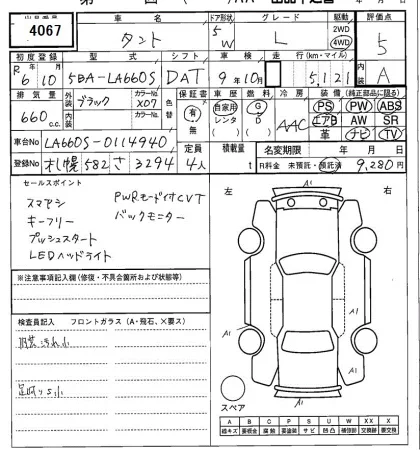 4067
車名 タント
ドア形状 5 W
グレード L
駆動 2WD 4WD
評価点 5
初度登録 R6 10
型式 5BA-LA660S
シフト DAT
車検 9年10月
走行(km・マイル) 5,121
内装 A
排気量 660 c.c.
外装 ブラック
カラーNo. X07
カラーNo.
色替
保証書 有 無
車歴 自家用 レンタ
燃料 G D
冷房 AAC
装備(純正部品に限る)
PS PW ABS
エアB AW SR
革 ナビ TV
車台No. LA660S-0114940
登録No. 札幌 582 さ 3294
定員 4人
積載量 t
名変期限 年 月 日
R料金 未預託・預託済 9,280円
セールスポイント
スマアシ PWRモード付CVT
キーフリー バックモニター
プッシュスタート
LEDヘッドライト
※注意事項記入欄(修復・不具合箇所および状態等)
検査員記入 フロントガラス(A・飛石、×要ス)
内装汚れ小
左 右
A1
A1
A1
A1
A1
スペア
A B C P S U W X XX
線キズ 要板金 腐蝕 要塗装 サビ 凹凸 補修跡 要交換 交換済